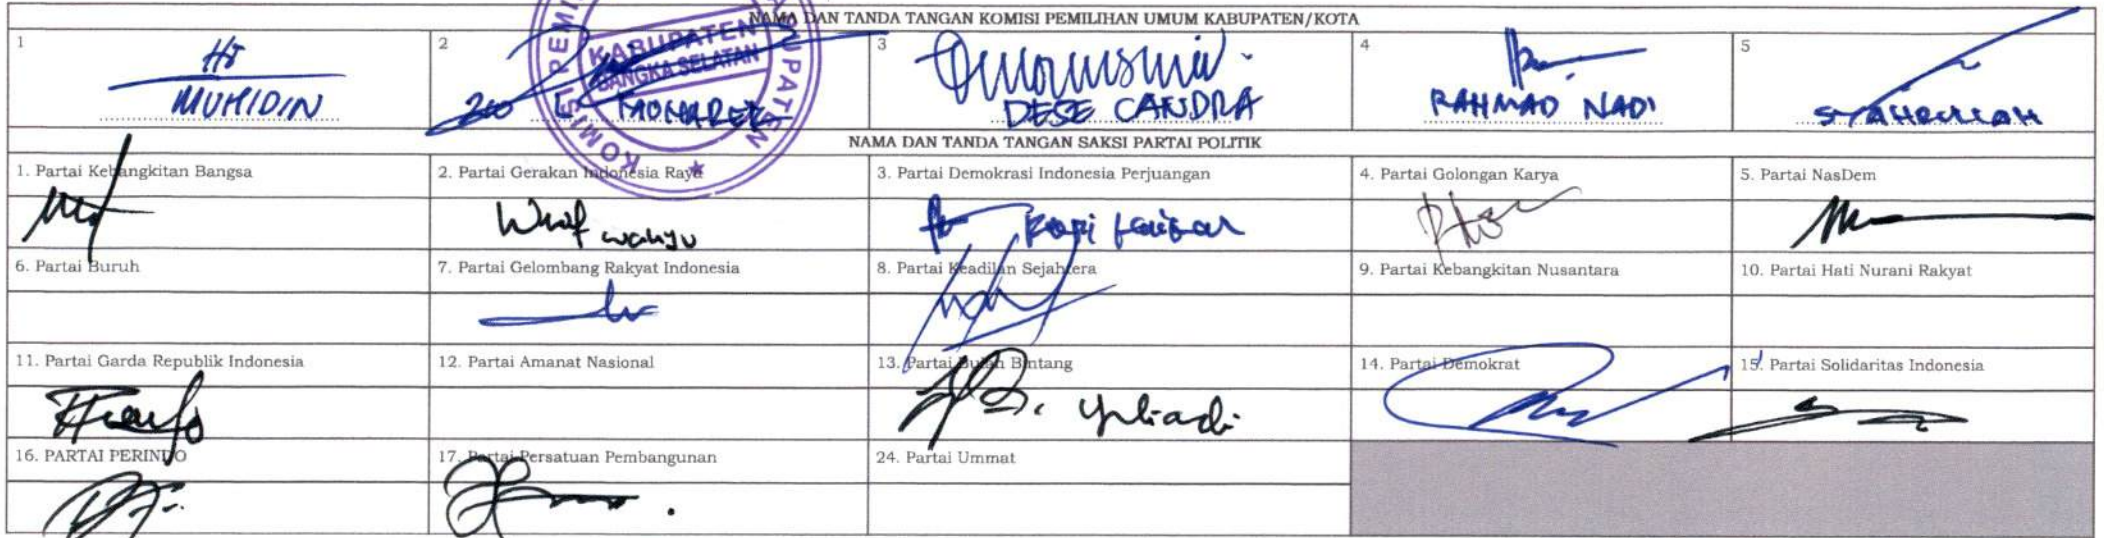 NAMA DAN TANDA TANGAN KOMISI PEMILIHAN UMUM KABUPATEN/KOTA
1 2 3 4 5
KABUPATEN
BANGKA SELATAN
MUHIDIN DESE CANDRA RAHMAD NADI
NAMA DAN TANDA TANGAN SAKSI PARTAI POLITIK
1. Partai Kebangkitan Bangsa 2. Partai Gerakan Indonesia Raya 3. Partai Demokrasi Indonesia Perjuangan 4. Partai Golongan Karya 5. Partai NasDem
wahyu
6. Partai Buruh 7. Partai Gelombang Rakyat Indonesia 8. Partai Keadilan Sejahtera 9. Partai Kebangkitan Nusantara 10. Partai Hati Nurani Rakyat
11. Partai Garda Republik Indonesia 12. Partai Amanat Nasional 13. Partai Bulan Bintang 14. Partai Demokrat 15. Partai Solidaritas Indonesia
yuliadi
16. PARTAI PERINDO 17. Partai Persatuan Pembangunan 24. Partai Ummat